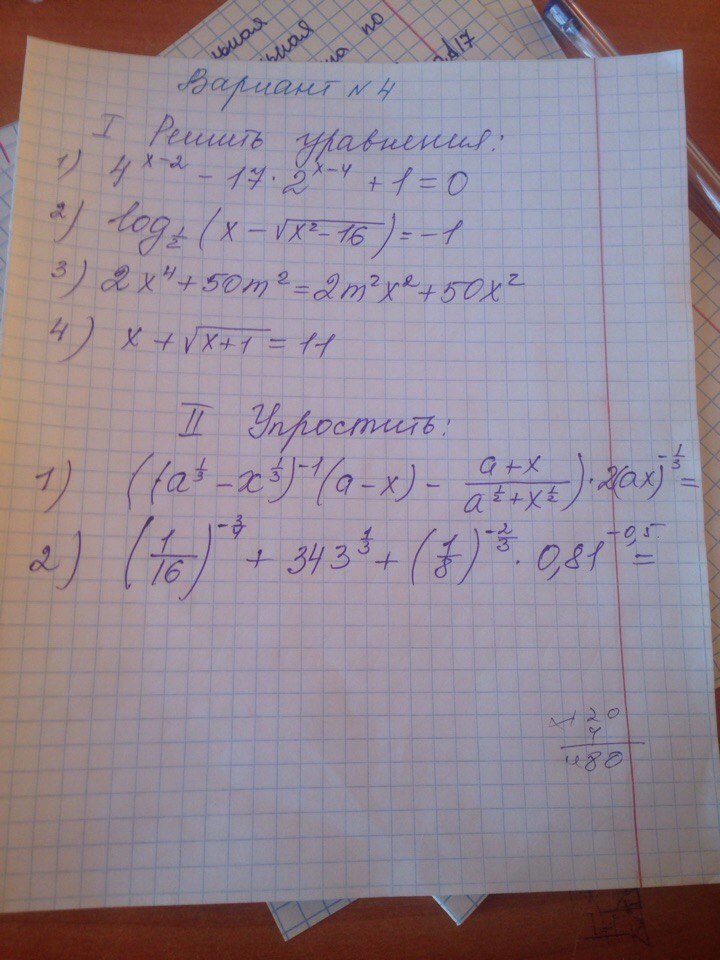 ьная
ьная
на по
Вариант № 4
I Решить уравнения:
1) 4^(x-2) - 17·2^(x-4) + 1 = 0
2) log_(1/2) (x - √(x²-16)) = -1
3) 2x⁴ + 50m² = 2m²x² + 50x²
4) x + √(x+1) = 11
II Упростить:
1) ((a^(1/3) - x^(1/3))^(-1) (a-x) - (a+x)/(a^(1/2) + x^(1/2))) · 2(ax)^(-1/3) =
2) (1/16)^(-3/4) + 343^(1/3) + (1/8)^(-2/3) · 0,81^(-0,5) =